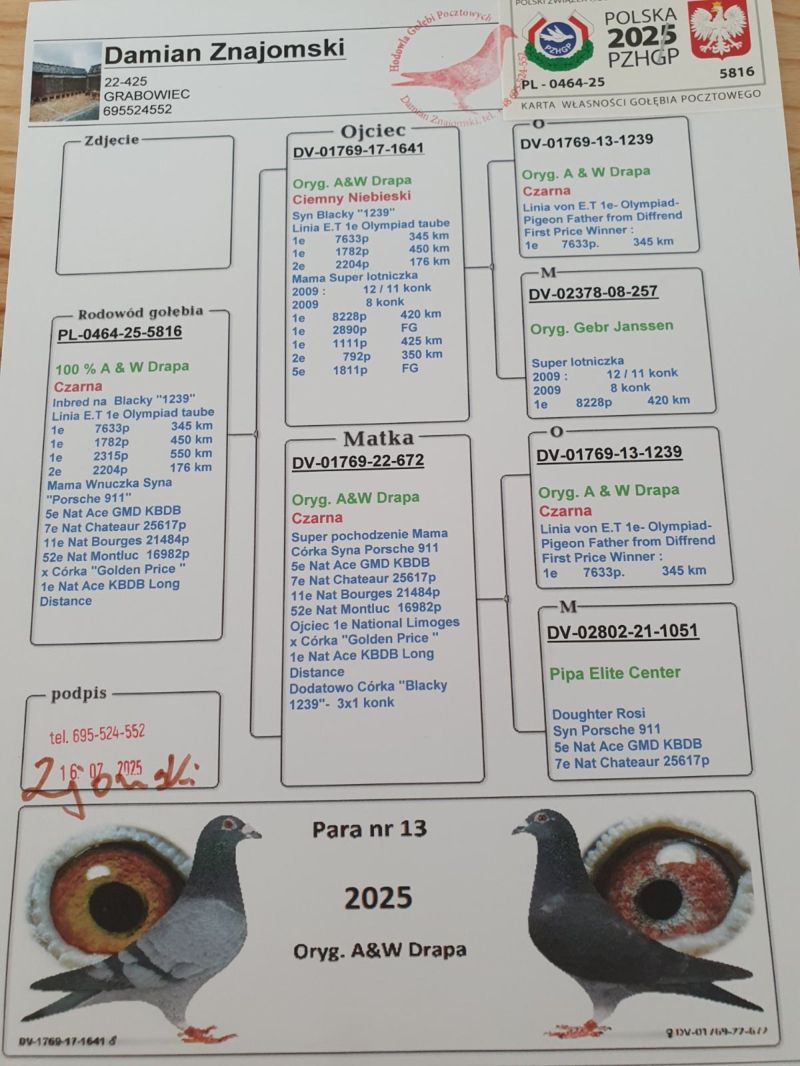 Damian Znajomski
22-425
GRABOWIEC
695524552
Hodowla Gołębi Pocztowych
Damian Znajomski, tel. +48 695-524-552
POLSKI ZWIĄZEK
POLSKA
2025
PZHGP
PZHGP
PL - 0464-25
5816
KARTA WŁASNOŚCI GOŁĘBIA POCZTOWEGO
Zdjecie
Rodowód gołębia
PL-0464-25-5816
100 % A & W Drapa
Czarna
Inbred na Blacky "1239"
Linia E.T 1e Olympiad taube
1e 7633p 345 km
1e 1782p 450 km
1e 2315p 550 km
2e 2204p 176 km
Mama Wnuczka Syna
"Porsche 911"
5e Nat Ace GMD KBDB
7e Nat Chateaur 25617p
11e Nat Bourges 21484p
52e Nat Montluc 16982p
x Córka "Golden Price "
1e Nat Ace KBDB Long
Distance
podpis
tel. 695-524-552
16. 07. 2025
Ojciec
DV-01769-17-1641
Oryg. A&W Drapa
Ciemny Niebieski
Syn Blacky "1239"
Linia E.T 1e Olympiad taube
1e 7633p 345 km
1e 1782p 450 km
2e 2204p 176 km
Mama Super lotniczka
2009 : 12 / 11 konk
2009 8 konk
1e 8228p 420 km
1e 2890p FG
1e 1111p 425 km
2e 792p 350 km
5e 1811p FG
Matka
DV-01769-22-672
Oryg. A&W Drapa
Czarna
Super pochodzenie Mama
Córka Syna Porsche 911
5e Nat Ace GMD KBDB
7e Nat Chateaur 25617p
11e Nat Bourges 21484p
52e Nat Montluc 16982p
Ojciec 1e National Limoges
x Córka "Golden Price "
1e Nat Ace KBDB Long
Distance
Dodatowo Córka "Blacky
1239"- 3x1 konk
O
DV-01769-13-1239
Oryg. A & W Drapa
Czarna
Linia von E.T 1e- Olympiad-
Pigeon Father from Diffrend
First Price Winner :
1e 7633p. 345 km
M
DV-02378-08-257
Oryg. Gebr Janssen
Super lotniczka
2009 : 12 / 11 konk
2009 8 konk
1e 8228p 420 km
O
DV-01769-13-1239
Oryg. A & W Drapa
Czarna
Linia von E.T 1e- Olympiad-
Pigeon Father from Diffrend
First Price Winner :
1e 7633p. 345 km
M
DV-02802-21-1051
Pipa Elite Center
Doughter Rosi
Syn Porsche 911
5e Nat Ace GMD KBDB
7e Nat Chateaur 25617p
Para nr 13
2025
Oryg. A&W Drapa
DV-1769-17-1641 ♂
♀ DV-01769-22-672